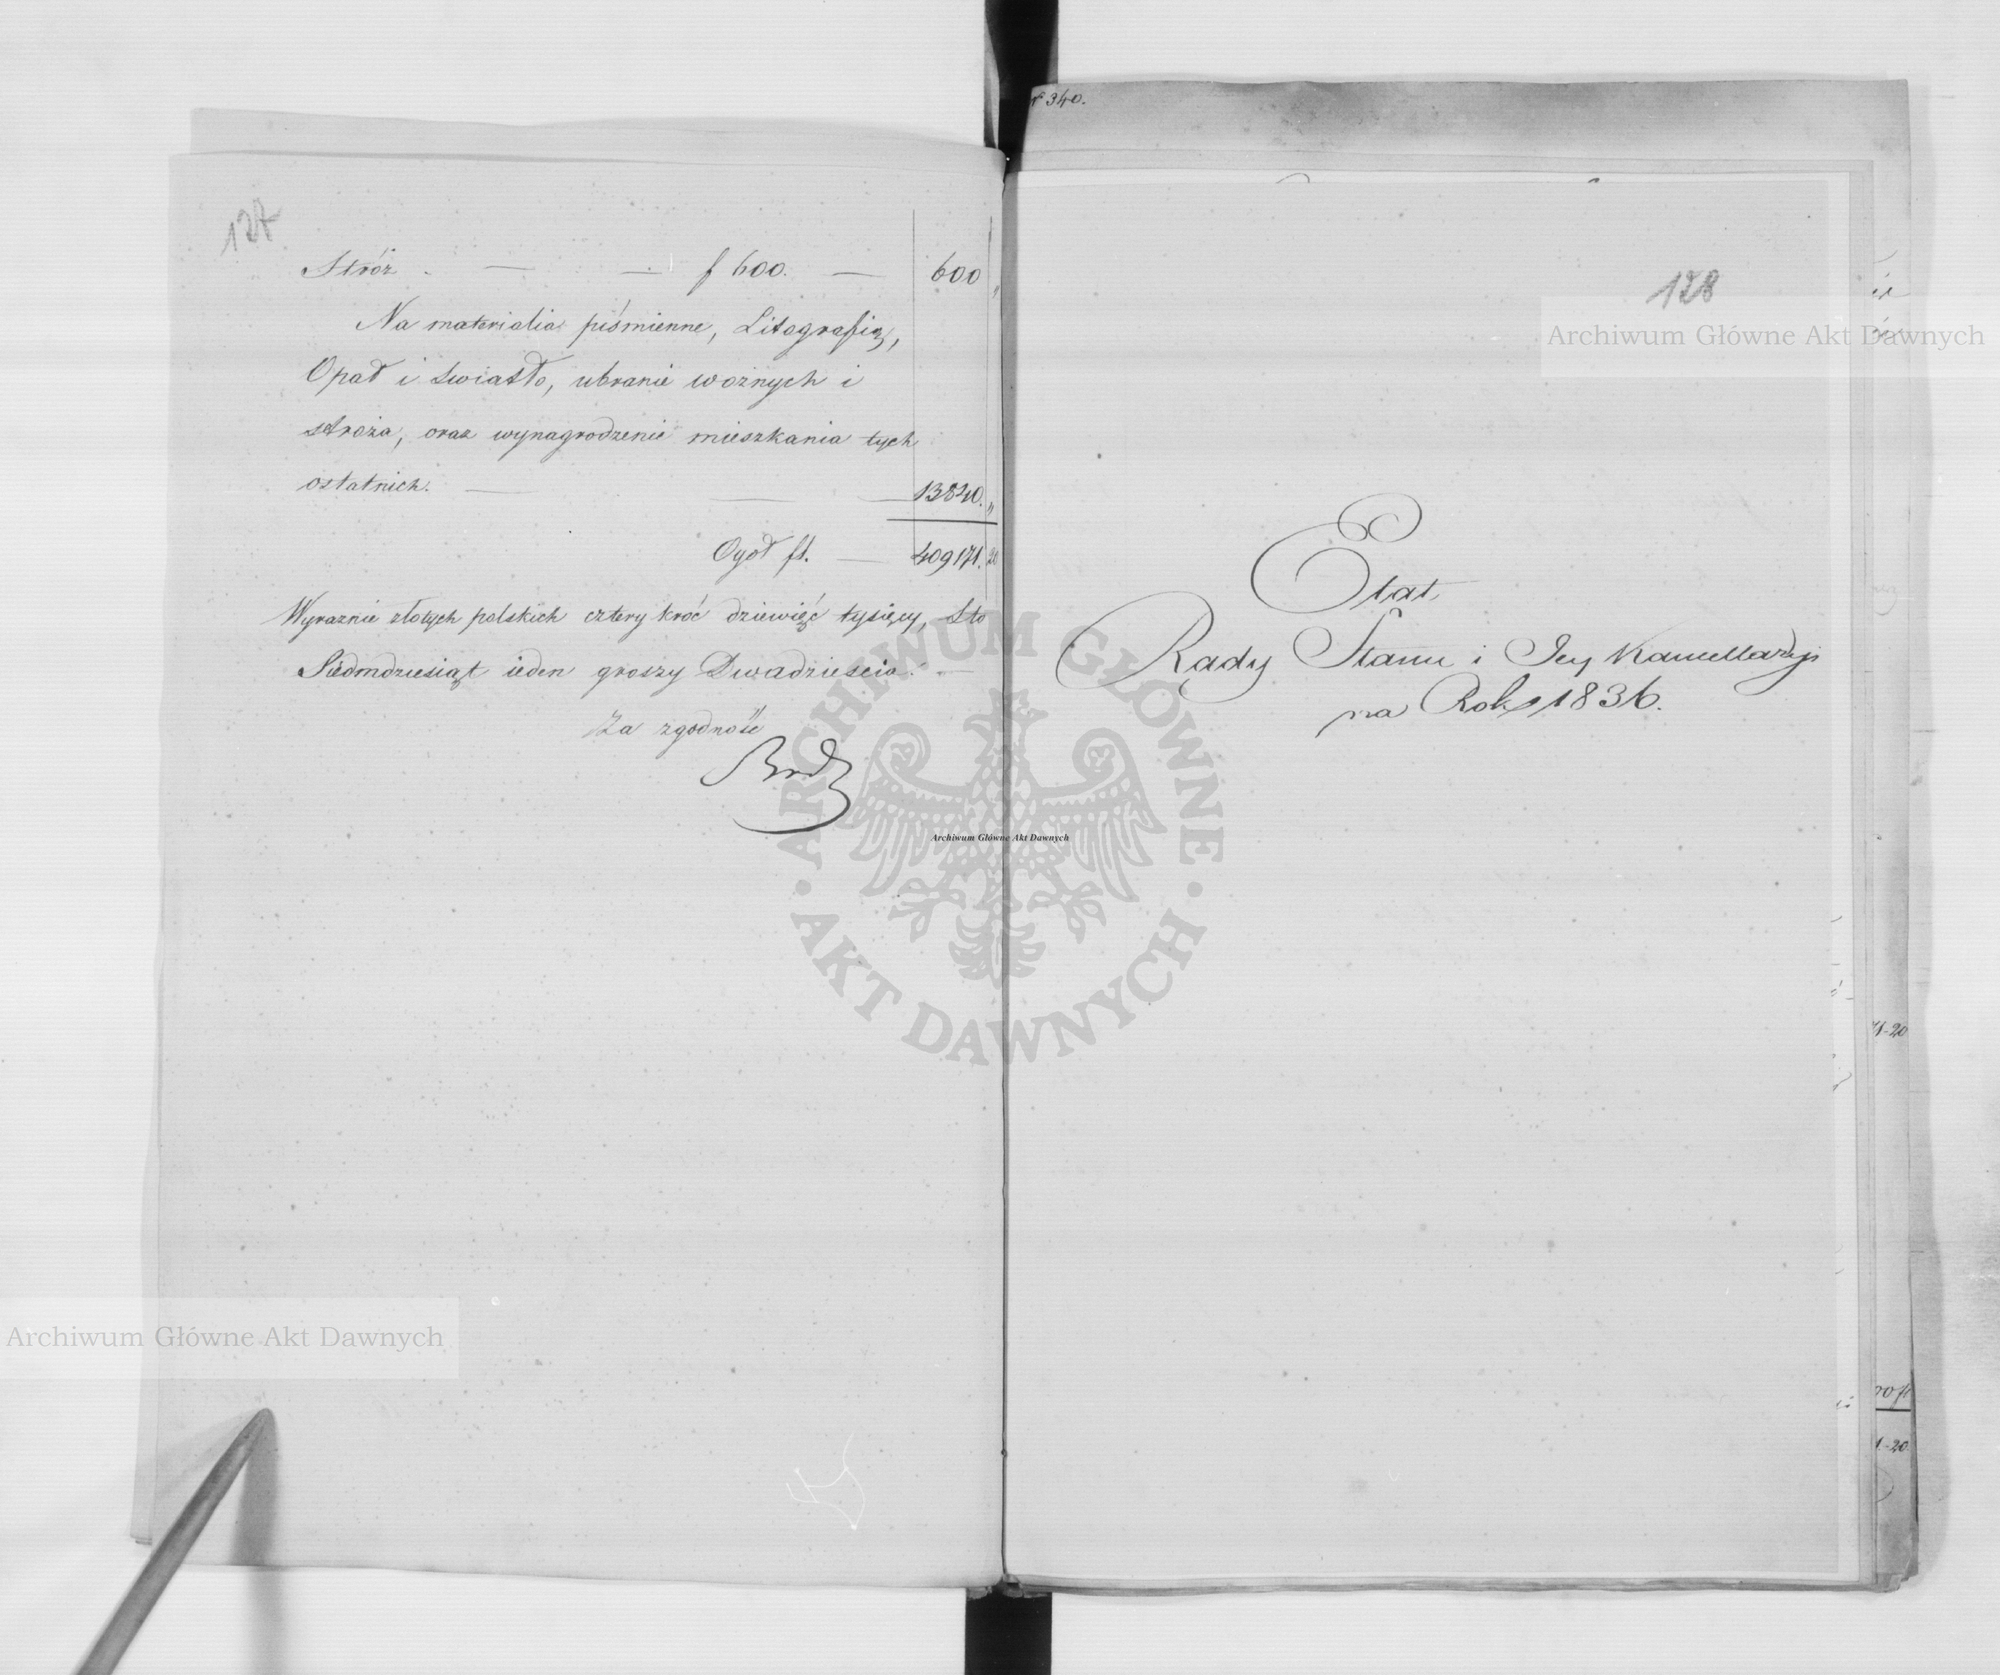 127
Stróż . — — f 600. — 600 "
Na materialia piśmienne, Litografią,
Opał i światło, ubranie woznych i
stroża, oraz wynagrodzenie mieszkania tych
ostatnich. — — — 13840. "
Ogół fl. — 409171. 20
Wyraznie złotych polskich cztery kroć dziewięć tysięcy, Sto
Siedmdziesiąt ieden groszy Dwadzieścia. —
Za zgodność
№ 340.
128
Etat
Rady Stanu i Jey Kancellaryi
na Rok 1836.
71-20
1-20
Archiwum Główne Akt Dawnych
Archiwum Główne Akt Dawnych
Archiwum Główne Akt Dawnych
ARCHIWUM GŁÓWNE · AKT DAWNYCH ·